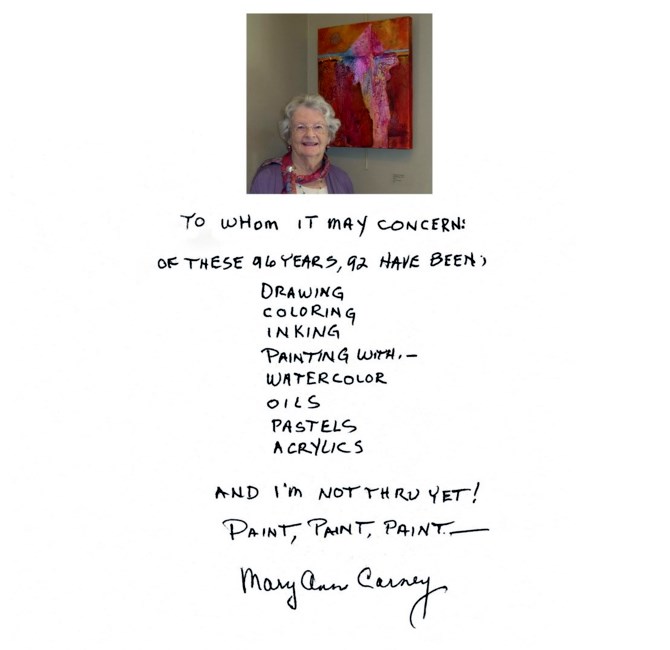 TO WHOM IT MAY CONCERN:
OF THESE 96 YEARS, 92 HAVE BEEN;
DRAWING
COLORING
INKING
PAINTING WITH.—
WATERCOLOR
OILS
PASTELS
ACRYLICS
AND I'M NOT THRU YET!
PAINT, PAINT, PAINT.—
Mary Ann Carney